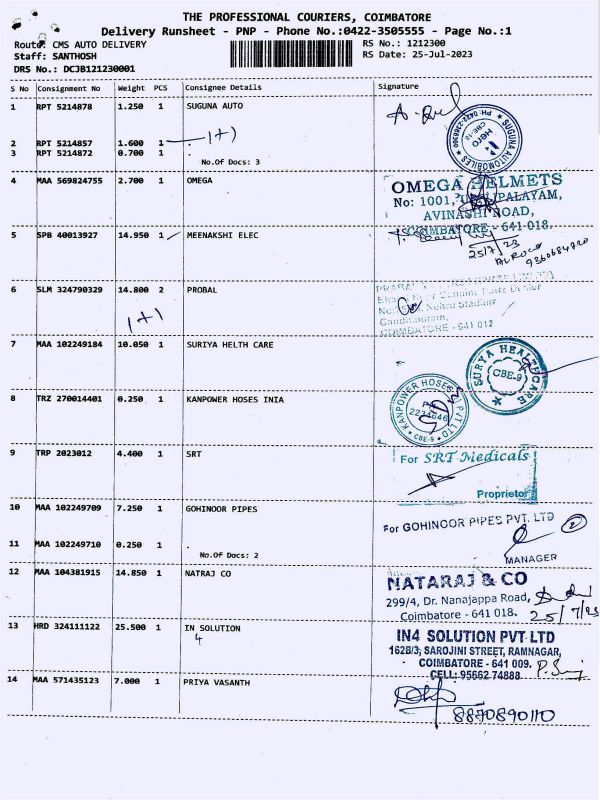 THE PROFESSIONAL COURIERS, COIMBATORE
Delivery Runsheet - PNP - Phone No.:0422-3505555 - Page No.:1
Route: CMS AUTO DELIVERY RS No.: 1212300
Staff: SANTHOSH RS Date: 25-Jul-2023
DRS No.: DCJB121230001
S No Consignment No Weight PCS Consignee Details Signature
1 RPT 5214878 1.250 1 SUGUNA AUTO
SUGUNA AUTOMOBILES
HERO
2 RPT 5214857 1.600 1 . (1+1)
3 RPT 5214872 0.700 1 .
No.Of Docs: 3
4 MAA 569824755 2.700 1 OMEGA
OMEGA HELMETS
No: 1001,
AVINASHI ROAD,
COIMBATORE - 641-018.
5 SPB 40013927 14.950 1 MEENAKSHI ELEC
25/7/23
9360684920
6 SLM 324790329 14.800 2 PROBAL
1+1
Nehru Stadium
Gandhipuram,
COIMBATORE - 641 012
7 MAA 102249184 10.050 1 SURIYA HELTH CARE
SURYA HEALTHCARE
CBE-9
8 TRZ 270014401 0.250 1 KANPOWER HOSES INIA
KANPOWER HOSES (I) PVT LTD
CBE-9
9 TRP 2023012 4.400 1 SRT
For SRT Medicals
Proprietor
10 MAA 102249709 7.250 1 GOHINOOR PIPES
For GOHINOOR PIPES PVT. LTD 2
11 MAA 102249710 0.250 1 .
No.Of Docs: 2
MANAGER
12 MAA 104381915 14.850 1 NATRAJ CO
NATARAJ & CO
299/4, Dr. Nanajappa Road,
Coimbatore - 641 018. 25/7/23
13 HRD 324111122 25.500 1 IN SOLUTION
4
IN4 SOLUTION PVT LTD
162B/3, SAROJINI STREET, RAMNAGAR,
COIMBATORE - 641 009.
CELL: 95662 74888
14 MAA 571435123 7.000 1 PRIYA VASANTH
8870890110